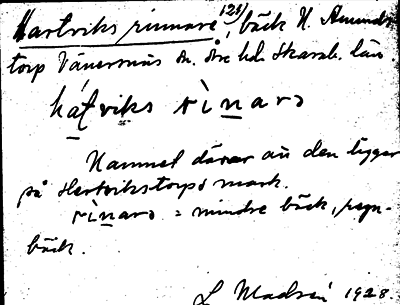 Hartviks rinnare 121), bäck N. Amunds-
torp Vänersnäs sn. Åse hd. Skarab. län.
hat̬viks rìnarə
Namnet därav att den ligger
på Hartvikstorps mark.
rìnarə = mindre bäck, regn-
bäck.
L Madsén 1928.